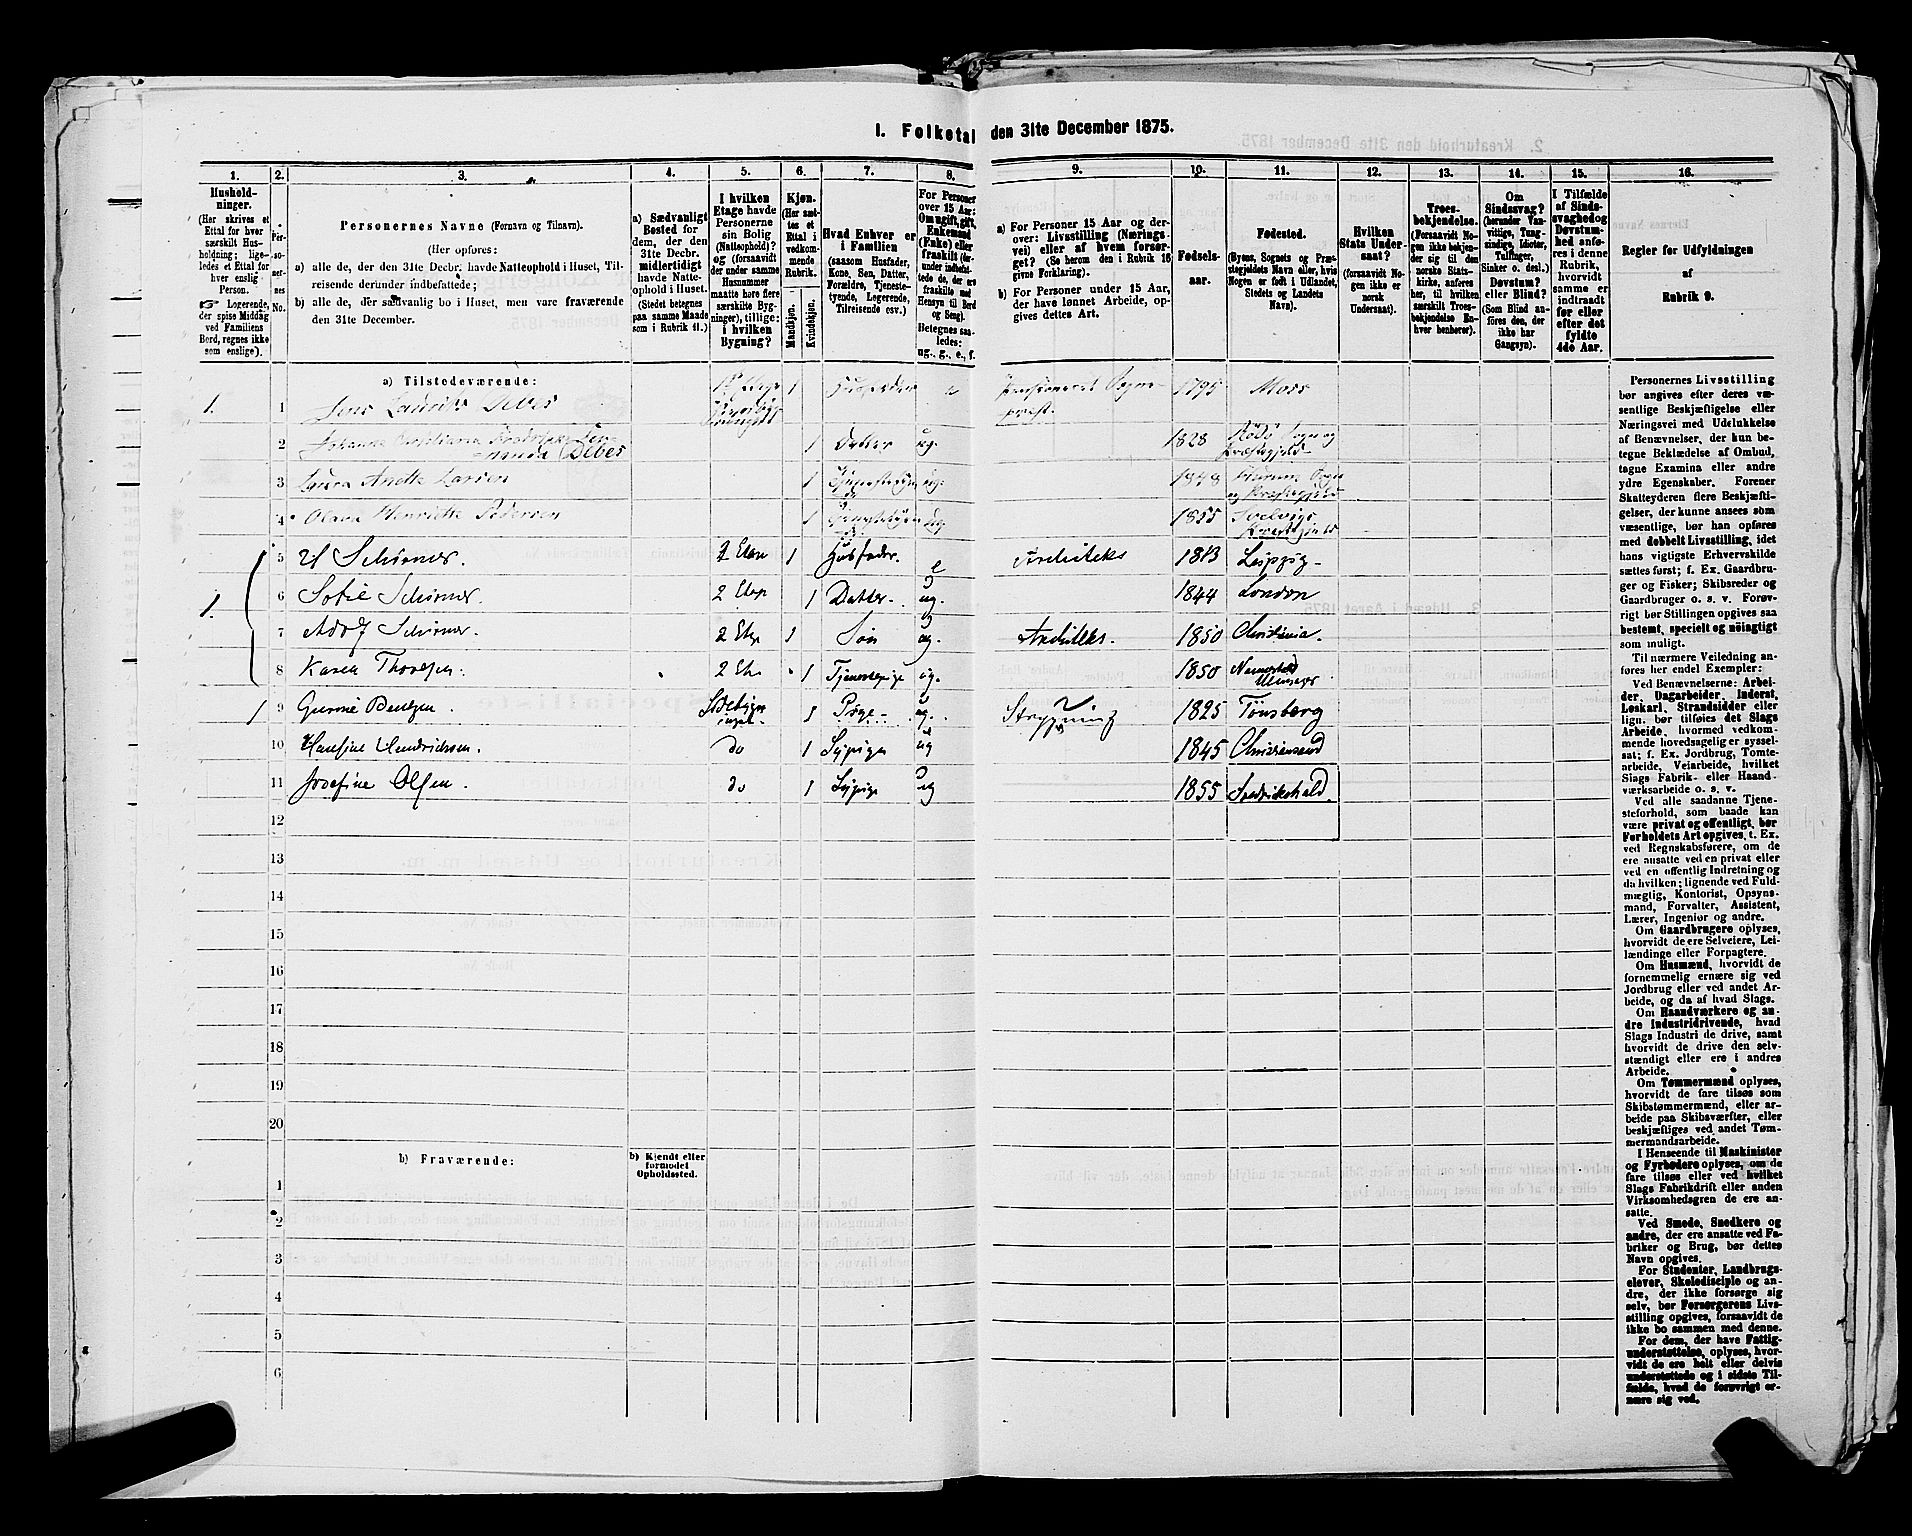 1. Folketal den 31te December 1875.
1. 2. 3. 4. 5. 6. 7. 8. 9. 10. 11. 12. 13. 14. 15. 16.
Husholdninger.
(Her skrives et
Ettal for hver
særskilt Husholdning;
ligeledes et Ettal for
hver enslig
Person.
Logerende,
der spise Middag
ved Familiens
Bord, regnes ikke
som enslige).
Personernes No.
Personernes Navne (Fornavn og Tilnavn).
(Her opføres:
a) alle de, der den 31te Decbr. havde Natteophold i Huset, Tilreisende
derunder indbefattede;
b) alle de, der sædvanlig bo i Huset, men vare fraværende
den 31te December.
a) Sædvanligt
Bosted for
dem, der den
31te Decbr.
midlertidigt
havde Natteophold
i Huset.
(Stedet betegnes
paa samme Maade
som i Rubrik 11.)
I hvilken
Etage havde
Personerne
sin Bolig
(Natteophold)?
og (forsaavidt
der under samme
Husnummer
maatte høre flere
særskilte Bygninger),
tillige:
i hvilken
Bygning?
Kjøn.
(Her sættes
et
Ettal i
vedkommende
Rubrik.
Mandkjøn.
Kvindekjøn.
Hvad Enhver er
i Familien
(saasom Husfader,
Kone, Søn, Datter,
Forældre, Tjenestetyende,
Logerende,
Tilreisende osv.)
For Personer
over 15 Aar:
Om ugift, gift,
Enkemand
(Enke) eller
fraskilt
Betegnes saaledes:
ug., g., e., f.
a) For Personer 15 Aar og derover:
Livsstilling (Næringsvei)
eller af hvem forsørget?
(Se herom den i Rubrik 16
givne Forklaring).
b) For Personer under 15 Aar,
der have lønnet Arbeide, opgives
dettes Art.
Fødselsaar.
Fødested.
(Byens, Sognets og Præstegjeldets
Navn eller, hvis
Nogen er født i Udlandet,
Stedets og Landets
Navn).
Hvilken
Stats Undersaat?
(forsaavidt Nogen
ikke er
norsk
Undersaat).
Troesbekjendelse.
(Forsaavidt Nogen
ikke bekjender
sig til den
norske Statskirke,
anføres
her, til hvilken
særskilt Troesbekjendelse
Enhver
henhører).
Om
Sindssvag?
(herunder Vanvittige,
Tungsindige,
Idioter,
Tullinger,
Sinker o. desl.)
Døvstum?
eller Blind?
(Som Blind anføres
den, der
ikke har
Gangsyn).
I Tilfælde
af Sindssvaghed
og
Døvstumhed
anføres
i denne
Rubrik,
hvorvidt
samme er
indtraadt
før eller
efter det
fyldte
4de Aar.
Regler for Udfyldningen
af
Rubrik 9.
a) Tilstedeværende:
1. 1 Jens Laurits Debes 1 Husfader e Pensioneret Sogneprest. 1795 Moss
2 Debes 1 Datter ug. 1828 Rödö Sogn og Præstegjeld
3 Laura Anette Larsen 1 ug. 1848
4 Olava Henriette Pedersen 1 ug 1855 Svelvigs Præstegjeld
5 Schirmer. 2 Etage 1 Husfader. e Architekt 1813 Leipzig
1. 6 Sofie Schirmer. 2 Etage 1 Datter ug. 1844 London
7 Adolf Schirmer. 2 Etge 1 Søn ug. Architekt. 1850 Christiania.
8 Karen Thoresen. 2 Etg 1 Tjenestepige ug. 1850
1 9 1 Pige ug. Strygning 1825 Tönsberg
10 Hansine Hendrichsen. do 1 Sypige ug 1845 Christiansand
11 Josefine Olsen. do 1 Sypige ug 1855 Fredrikshald.
12
13
14
15
16
17
18
19
20
b) Fraværende:
b) Kjendt eller
formodet
Opholdssted.
1
2
3
4
5
6
Personernes Livsstilling
bør angives efter deres væsentlige
Beskjæftigelse eller
Næringsvei med Udelukkelse
af Benævnelser, der kun betegne
Beklædelse af Ombud,
tagne Examina eller andre
ydre Egenskaber. Forener
Skatteyderen flere Beskjæftigelser,
der kunne ansees som
væsentlige, bør han opføres
med dobbelt Livsstilling, idet
hans vigtigste Erhvervskilde
sættes først; f. Ex. Gaardbruger
og Fisker; Skibsreder og
Gaardbruger o. s. v. Forøvrigt
bør Stillingen opgives saa
bestemt, specielt og nøiagtigt
som muligt.
Til nærmere Veiledning anføres
her endel Exempler:
Ved Benævnelserne: Arbeider,
Dagarbeider, Inderst,
Løskarl, Strandsidder eller
lign. bør tilføies det Slags
Arbeide, hvormed vedkommende
hovedsagelig er sysselsat;
f. Ex. Jordbrug, Tomtearbeide,
Veiarbeide, hvilket
Slags Fabrik- eller Haandværksarbeide
o. s. v.
Ved alle saadanne Tjenesteforhold,
som baade kan
være privat og offentligt, bør
Forholdets Art opgives, t. Ex.
ved Regnskabsførere, om de
ere ansatte ved en privat eller
ved en offentlig Indretning og
da hvilken; lignende ved Fuldmægtig,
Kontorist, Opsynsmand,
Forvalter, Assistent,
Lærer, Ingeniør og andre.
Om Gaardbrugere oplyses,
hvorvidt de ere Selveiere, Leilændinge
eller Forpagtere.
Om Husmænd, hvorvidt de
fornemmelig ernære sig ved
Jordbrug eller ved andet Arbeide,
og da af hvad Slags.
Om Haandværkere og andre
Industridrivende, hvad
Slags Industri de drive, samt
hvorvidt de drive den selvstændigt
eller ere i andres
Arbeide.
Om Tømmermænd oplyses,
hvorvidt de fare tilsøs som
Skibstømmermænd, eller arbeide
paa Skibsværfter, eller
beskjæftiges ved andet Tømmermandsarbeide.
I Henseende til Maskinister
og Fyrbødere oplyses, om de
fare tilsøs eller ved hvilket
Slags Fabrikdrift eller anden
Virksomhedsgren de ere ansatte.
Ved Smede, Snedkere og
andre, der ere ansatte ved Fabriker
og Brug, bør dettes
Navn opgives.
For Studenter, Landbrugselever,
Skoledisciple og andre,
der ikke forsørge sig
selv, bør Forsørgerens Livsstilling
opgives, forsaavidt de
ikke bo sammen med denne.
For dem, der have Fattigunderstøttelse,
oplyses, hvorvidt
de ere helt eller delvis
understøttede og i sidste Tilfælde,
hvad de forøvrigt ernære
sig ved.